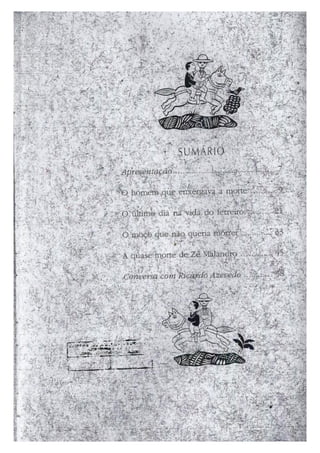 SUMÁRIO
Apresentação
O homem que enxergava a morte
O último dia na vida do ferreiro
O moço que não queria morrer
A quase morte de Zé Malandro
Conversa com Ricardo Azevedo